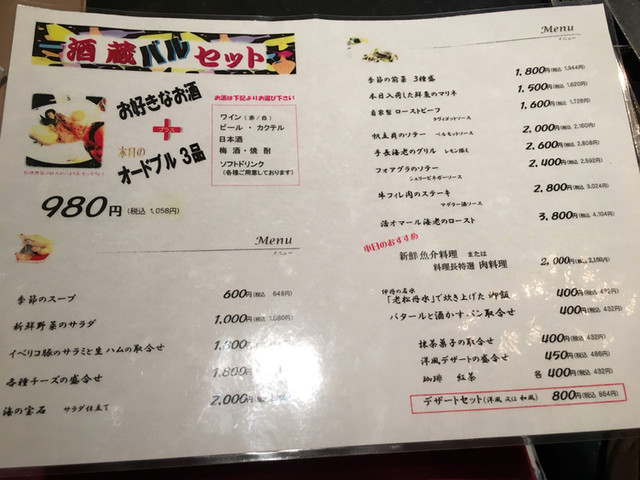 酒蔵バルセット
お好きなお酒
プラス
本日の
オードブル 3品
お酒は下記よりお選び下さい
ワイン (赤/白)
ビール・カクテル
日本酒
梅酒・焼酎
ソフトドリンク
(各種ご用意しております)
980円 (税込 1,058円)
Menu
メニュー
季節のスープ 600円(税込 648円)
新鮮野菜のサラダ 1,000円(税込 1,080円)
イベリコ豚のサラミと生ハムの取合せ 1,800円(税込
各種チーズの盛合せ 1,800円(税込
海の宝石 サラダ仕立て 2,000円(税込
Menu
メニュー
季節の前菜 3種盛 1,800円(税込 1,944円)
本日入荷した鮮菜のマリネ 1,500円(税込 1,620円)
自家製 ローストビーフ 1,600円(税込 1,728円)
ラヴィゴットソース
帆立貝のソテー ベルモットソース 2,000円(税込 2,160円)
手長海老のグリル レモン添え 2,600円(税込 2,808円)
フォアグラのソテー 2,400円(税込 2,592円)
シェリービネガーソース
牛フィレ肉のステーキ 2,800円(税込 3,024円)
マデラー酒ソース
活オマール海老のロースト 3,800円(税込 4,104円)
本日のおすすめ
新鮮 魚介料理 または
料理長特選 肉料理 2,000円(税込 2,160円)
伊丹の名水
「老松丹水」で炊き上げた御飯 400円(税込 432円)
バタールと酒かすパン取合せ 400円(税込 432円)
抹茶菓子の取合せ 400円(税込 432円)
洋風デザートの盛合せ 450円(税込 486円)
珈琲 紅茶 各 400円(税込 432円)
デザートセット(洋風 又は 和風) 800円(税込 864円)